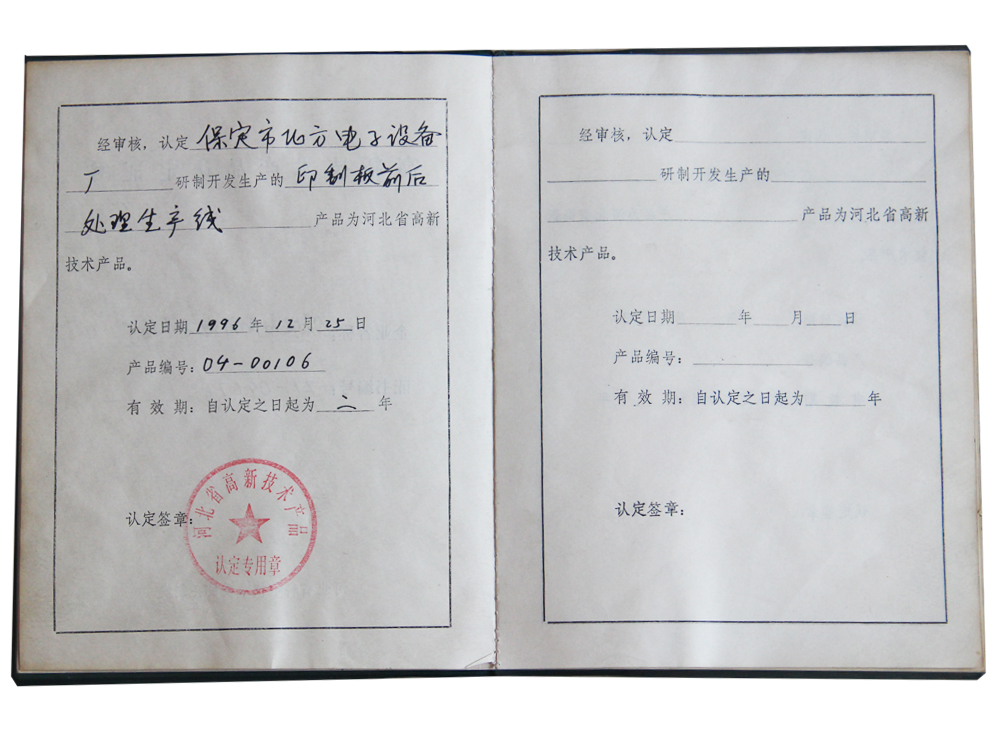 经审核，认定 保定市地方电子设备
厂 研制开发生产的 印制板前后
处理生产线 产品为河北省高新
技术产品。
认定日期 1996 年 12 月 25 日
产品编号：04-00106
有 效 期：自认定之日起为 二 年
认定签章：
河北省高新技术产品
认定专用章
经审核，认定
研制开发生产的
产品为河北省高新
技术产品。
认定日期 年 月 日
产品编号：
有 效 期：自认定之日起为 年
认定签章：